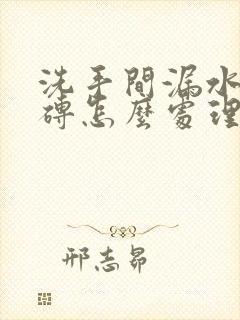 洗手間漏水
磚怎麼處理
邢志昴